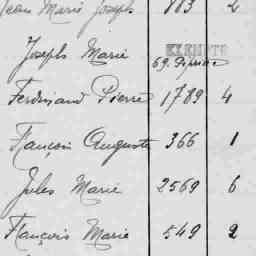 Jean Marie Joseph 883 2
Joseph Marie EXEMPTÉ
69.
Ferdinand Pierre 1789 4
François Auguste 366 1
Jules Marie 2569 6
François Marie 549 2